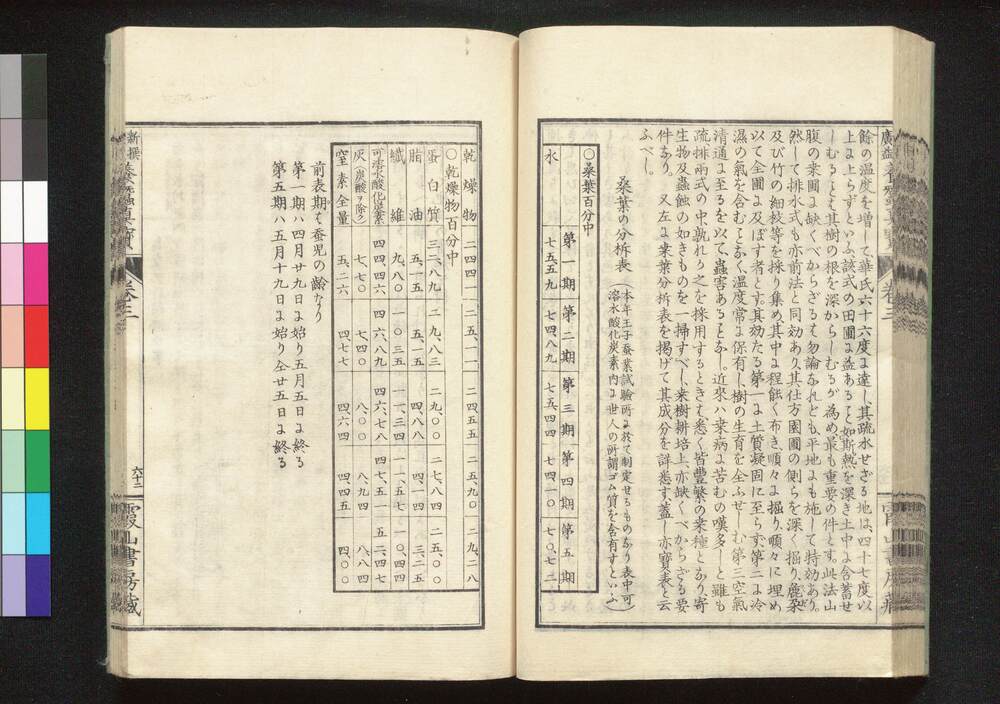 餘の温度を増して華氏六十六度ょ達し、其疏水せざる地は、四十七度以
上ょ上らずといふ該式の田圃ょ益あること如斯熱を深き土中ょ含蓄せ
しむるも其樹の根を深からしむるが為め最も重要の件とす。此法山
腹の桒圃ょ缺くべからざるも勿論なれども平地ょも施して特効あり。
然して排水式も亦前法と同効あり其仕方園圃の側らを深く掘り麁朶
及び竹の細枝等を採り集め其中ょ程能く布き順々ょ掘り順々に埋め
以て全圃ょ及ぼす者とす。其効たる第一ょ土質凝固に至らず第二ょ冷
濕の氣を含むことなく、温度常ょ保有し、樹の生育を全ふせしむ第三空氣
清通ょ至るを以て蟲害あるとなし。近來ハ桒病ょ苦むの嘆多しと雖も
疏排兩式の中孰れり之を採用するときも悉く皆豐繁の桒種となり、寄
生物及蟲蝕の如きものを一掃すべし、桒樹耕培上亦缺くべからざる要
件なり。又左ょ桒葉分析表を掲げて其成分を詳悉す、蓋し亦寳表と云
ふべし。
桒葉の分析表
(本年王子蚕業試驗所ょ於て制定せるものなり表中可
溶水酸化炭素内ょ世人の所謂ゴム質を含有すといふ)
〇桒葉百分中
第一期 第二期 第三期 第四期 第五期
水 七五、五九 七四、八九 七五、四四 七四、一〇 七〇、七二
乾燥物 二四、四一 二五、一一 二四、五五 二五、九〇 二九、二八
〇乾燥物百分中
蛋白質 三二、八九 二九、八三 二九、〇〇 二七、八四 二五、〇〇
脂油 五、一五 五、五五 四、八八 四、一四 三、二五
纎維 九、八〇 一〇、三五 一一、三四 一一、五七 一〇、四四
可溶水酸化炭素 四四、四六 四六、八九 四六、七八 四七、五一 五二、四七
灰(炭酸ヲ除ク) 七、七〇 七、四〇 八、〇〇 八、九四 八、八四
窒素全量 五、二六 四、七七 四、六四 四、四五 四、〇〇
前表期も蚕児の齡なり
第一期ハ四月廿九日ょ始り五月五日ょ終る
第五期ハ五月十九日ょ始り仝廿五日ょ終る
新撰養蠶真寳
卷三
六十三
霞山書房藏